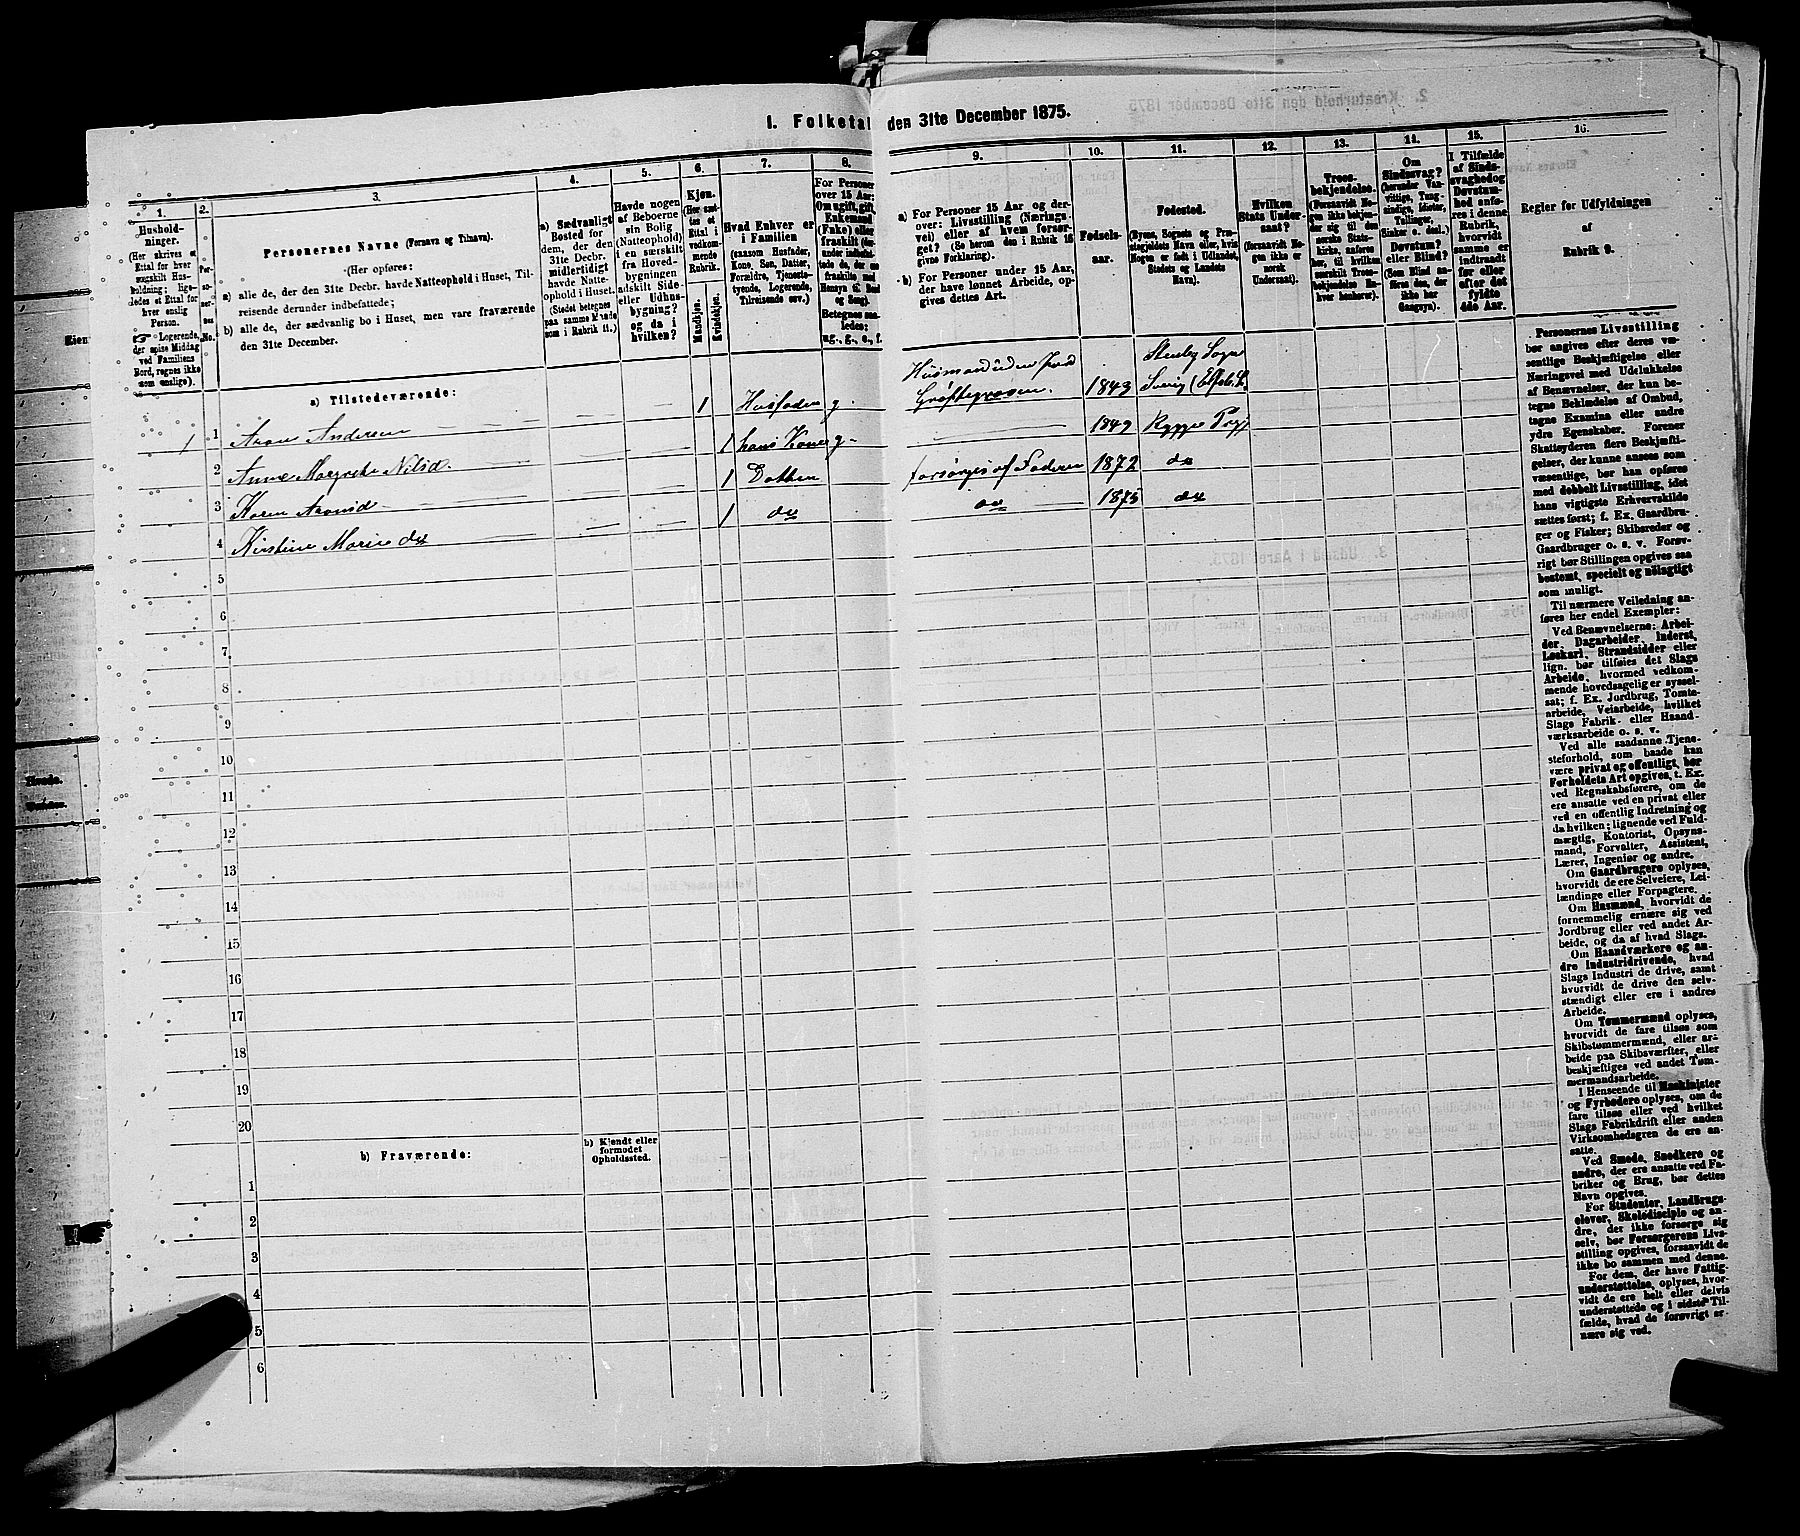 I. Folketa den 31te December 1875.
1.
2.
3.
4.
5.
6.
7.
8.
9.
10.
11.
12.
13.
14.
15.
16.
Hushold-
ninger.
(Her skrives et
Ettal for hver
særskilt Hus-
holdning; lige-
ledes et Ettal for
hver enslig
Person.
☞ Logerende,
der spise Middag
ved Familiens
Bord, regnes ikke
som enslige).
Per-
so-
ner-
nes
No.
Personernes Navne (Fornavn og Tilnavn).
(Her opføres:
a) alle de, der den 31te Decbr. havde Natteophold i Huset, Til-
reisende derunder indbefattede;
b) alle de, der sædvanlig bo i Huset, men vare fraværende
den 31te December.
a) Sædvanligt
Bosted for
dem, der den
31te Decbr.
midlertidigt
havde Natte-
ophold i Huset.
(Stedet betegnes
paa samme Maade
som i Rubrik 11.)
Havde nogen
af Beboerne
sin Bolig
(Natteophold)
i en særskilt
fra Hoved-
bygningen
adskilt Side-
eller Udhus-
bygning?
og da i
hvilken?
Kjøn.
(Her sæt-
tes et
Ettal i
vedkom-
mende
Rubrik.
Mandkjøn.
Kvindekjøn.
Hvad Enhver er
i Familien
(saasom Husfader,
Kone, Søn, Datter,
Forældre, Tjeneste-
tyende, Logerende,
Tilreisende osv.)
For Personer
over 15 Aar:
Om ugift, gift,
Enkemand
(Enke) eller
fraskilt
Betegnes saa-
ledes:
ug., g., e., f.
a) For Personer 15 Aar og der-
over: Livsstilling (Nærings-
vei) eller af hvem forsør-
get? (Se herom den i Rubrik 16
givne Forklaring).
b) For Personer under 15 Aar,
der have lønnet Arbeide, op-
gives dettes Art.
Fødsels-
aar.
Fødested.
(Byens, Sognets og Præ-
stegjeldets Navn eller, hvis
Nogen er født i Udlandet,
Stedets og Landets
Navn).
Hvilken
Stats Under-
saat?
(forsaavidt No-
gen ikke er
norsk
Undersaat).
Troes-
bekjendelse.
(Forsaavidt No-
gen ikke bekjen-
der sig til den
norske Stats-
kirke, anføres
her, til hvilken
særskilt Troes-
bekjendelse En-
hver henhører).
Om
Sindssvag?
(herunder Van-
vittige, Tung-
sindige, Idioter,
Tullinger,
Sinker o. desl.)
Døvstum?
eller Blind?
(Som Blind an-
føres den, der
ikke har
Gangsyn).
I Tilfælde
af Sinds-
svaghed og
Døvstum-
hed anfø-
res i denne
Rubrik,
hvorvidt
samme er
indtraadt
før eller
efter det
fyldte
4de Aar.
Regler for Udfyldningen
af
Rubrik 9.
a) Tilstedeværende:
1 1 Aron Andersen 1 Husfader g. Husmand uden Jord Grøftegraver 1843 Stenby Sogn Sverig
2 Anne Margrethe Nilsd. 1 hans Kone g. 1849 Rygge Pgj
3 Karen Aronsd 1 Datter forsørges af Faderen 1872 do
4 Kirstine Marie do 1 do do 1875 do
5
6
7
8
9
10
11
12
13
14
15
16
17
18
19
20
b) Fraværende:
b) Kjendt eller
formodet
Opholdssted.
1
2
3
4
5
6
Personernes Livsstilling
bør angives efter deres væ-
sentlige Beskjæftigelse eller
Næringsvei med Udelukkelse
af Benævnelser, der kun be-
tegne Beklædelse af Ombud,
tagne Examina eller andre
ydre Egenskaber. Forener
Skatteyderen flere Beskjæfti-
gelser, der kunne ansees som
væsentlige, bør han opføres
med dobbelt Livsstilling, idet
hans vigtigste Erhvervskilde
sættes først; f. Ex. Gaardbru-
ger og Fisker; Skibsreder og
Gaardbruger o. s. v. Forøv-
rigt bør Stillingen opgives saa
bestemt, specielt og nøiagtigt
som muligt.
Til nærmere Veiledning an-
føres her endel Exempler:
Ved Benævnelserne: Arbei-
der, Dagarbeider, Inderst,
Løskarl, Strandsidder eller
lign. bør tilføies det Slags
Arbeide, hvormed vedkom-
mende hovedsagelig er syssel-
sat; f. Ex. Jordbrug, Tomte-
arbeide, Veiarbeide, hvilket
Slags Fabrik- eller Haand-
værksarbeide o. s. v.
Ved alle saadanne Tjene-
steforhold, som baade kan
være privat og offentligt, bør
Forholdets Art opgives, t. Ex.
ved Regnskabsførere, om de
ere ansatte ved en privat eller
ved en offentlig Indretning og
da hvilken; lignende ved Fuld-
mægtig, Kontorist, Opsyns-
mand, Forvalter, Assistent,
Lærer, Ingeniør og andre.
Om Gaardbrugere oplyses,
hvorvidt de ere Selveiere, Lei-
lændinge eller Forpagtere.
Om Husmænd, hvorvidt de
fornemmelig ernære sig ved
Jordbrug eller ved andet Ar-
beide, og da af hvad Slags.
Om Haandværkere og an-
dre Industridrivende, hvad
Slags Industri de drive, samt
hvorvidt de drive den selv-
stændigt eller ere i andres
Arbeide.
Om Tømmermænd oplyses,
hvorvidt de fare tilsøs som
Skibstømmermænd, eller ar-
beide paa Skibsværfter, eller
beskjæftiges ved andet Tøm-
mermandsarbeide.
I Henseende til Maskinister
og Fyrbødere oplyses, om de
fare tilsøs eller ved hvilket
Slags Fabrikdrift eller anden
Virksomhedsgren de ere an-
satte.
Ved Smede, Snedkere og
andre, der ere ansatte ved Fa-
briker og Brug, bør dettes
Navn opgives.
For Studenter, Landbrugs-
elever, Skoledisciple og an-
dre, der ikke forsørge sig
selv, bør Forsørgerens Livs-
stilling opgives, forsaavidt de
ikke bo sammen med denne.
For dem, der have Fattig-
understøttelse, oplyses, hvor-
vidt de ere helt eller delvis
understøttede og i sidste Til-
fælde, hvad de forøvrigt er-
nære sig ved.